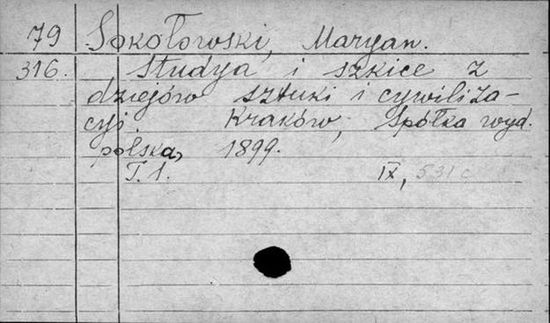 79 Sokołowski, Maryan.
316. Studya i szkice z
dziejów sztuki i cywiliza-
cyi. Kraków, Spółka wyd.
polska, 1899.
T. 1. IX, 531 c